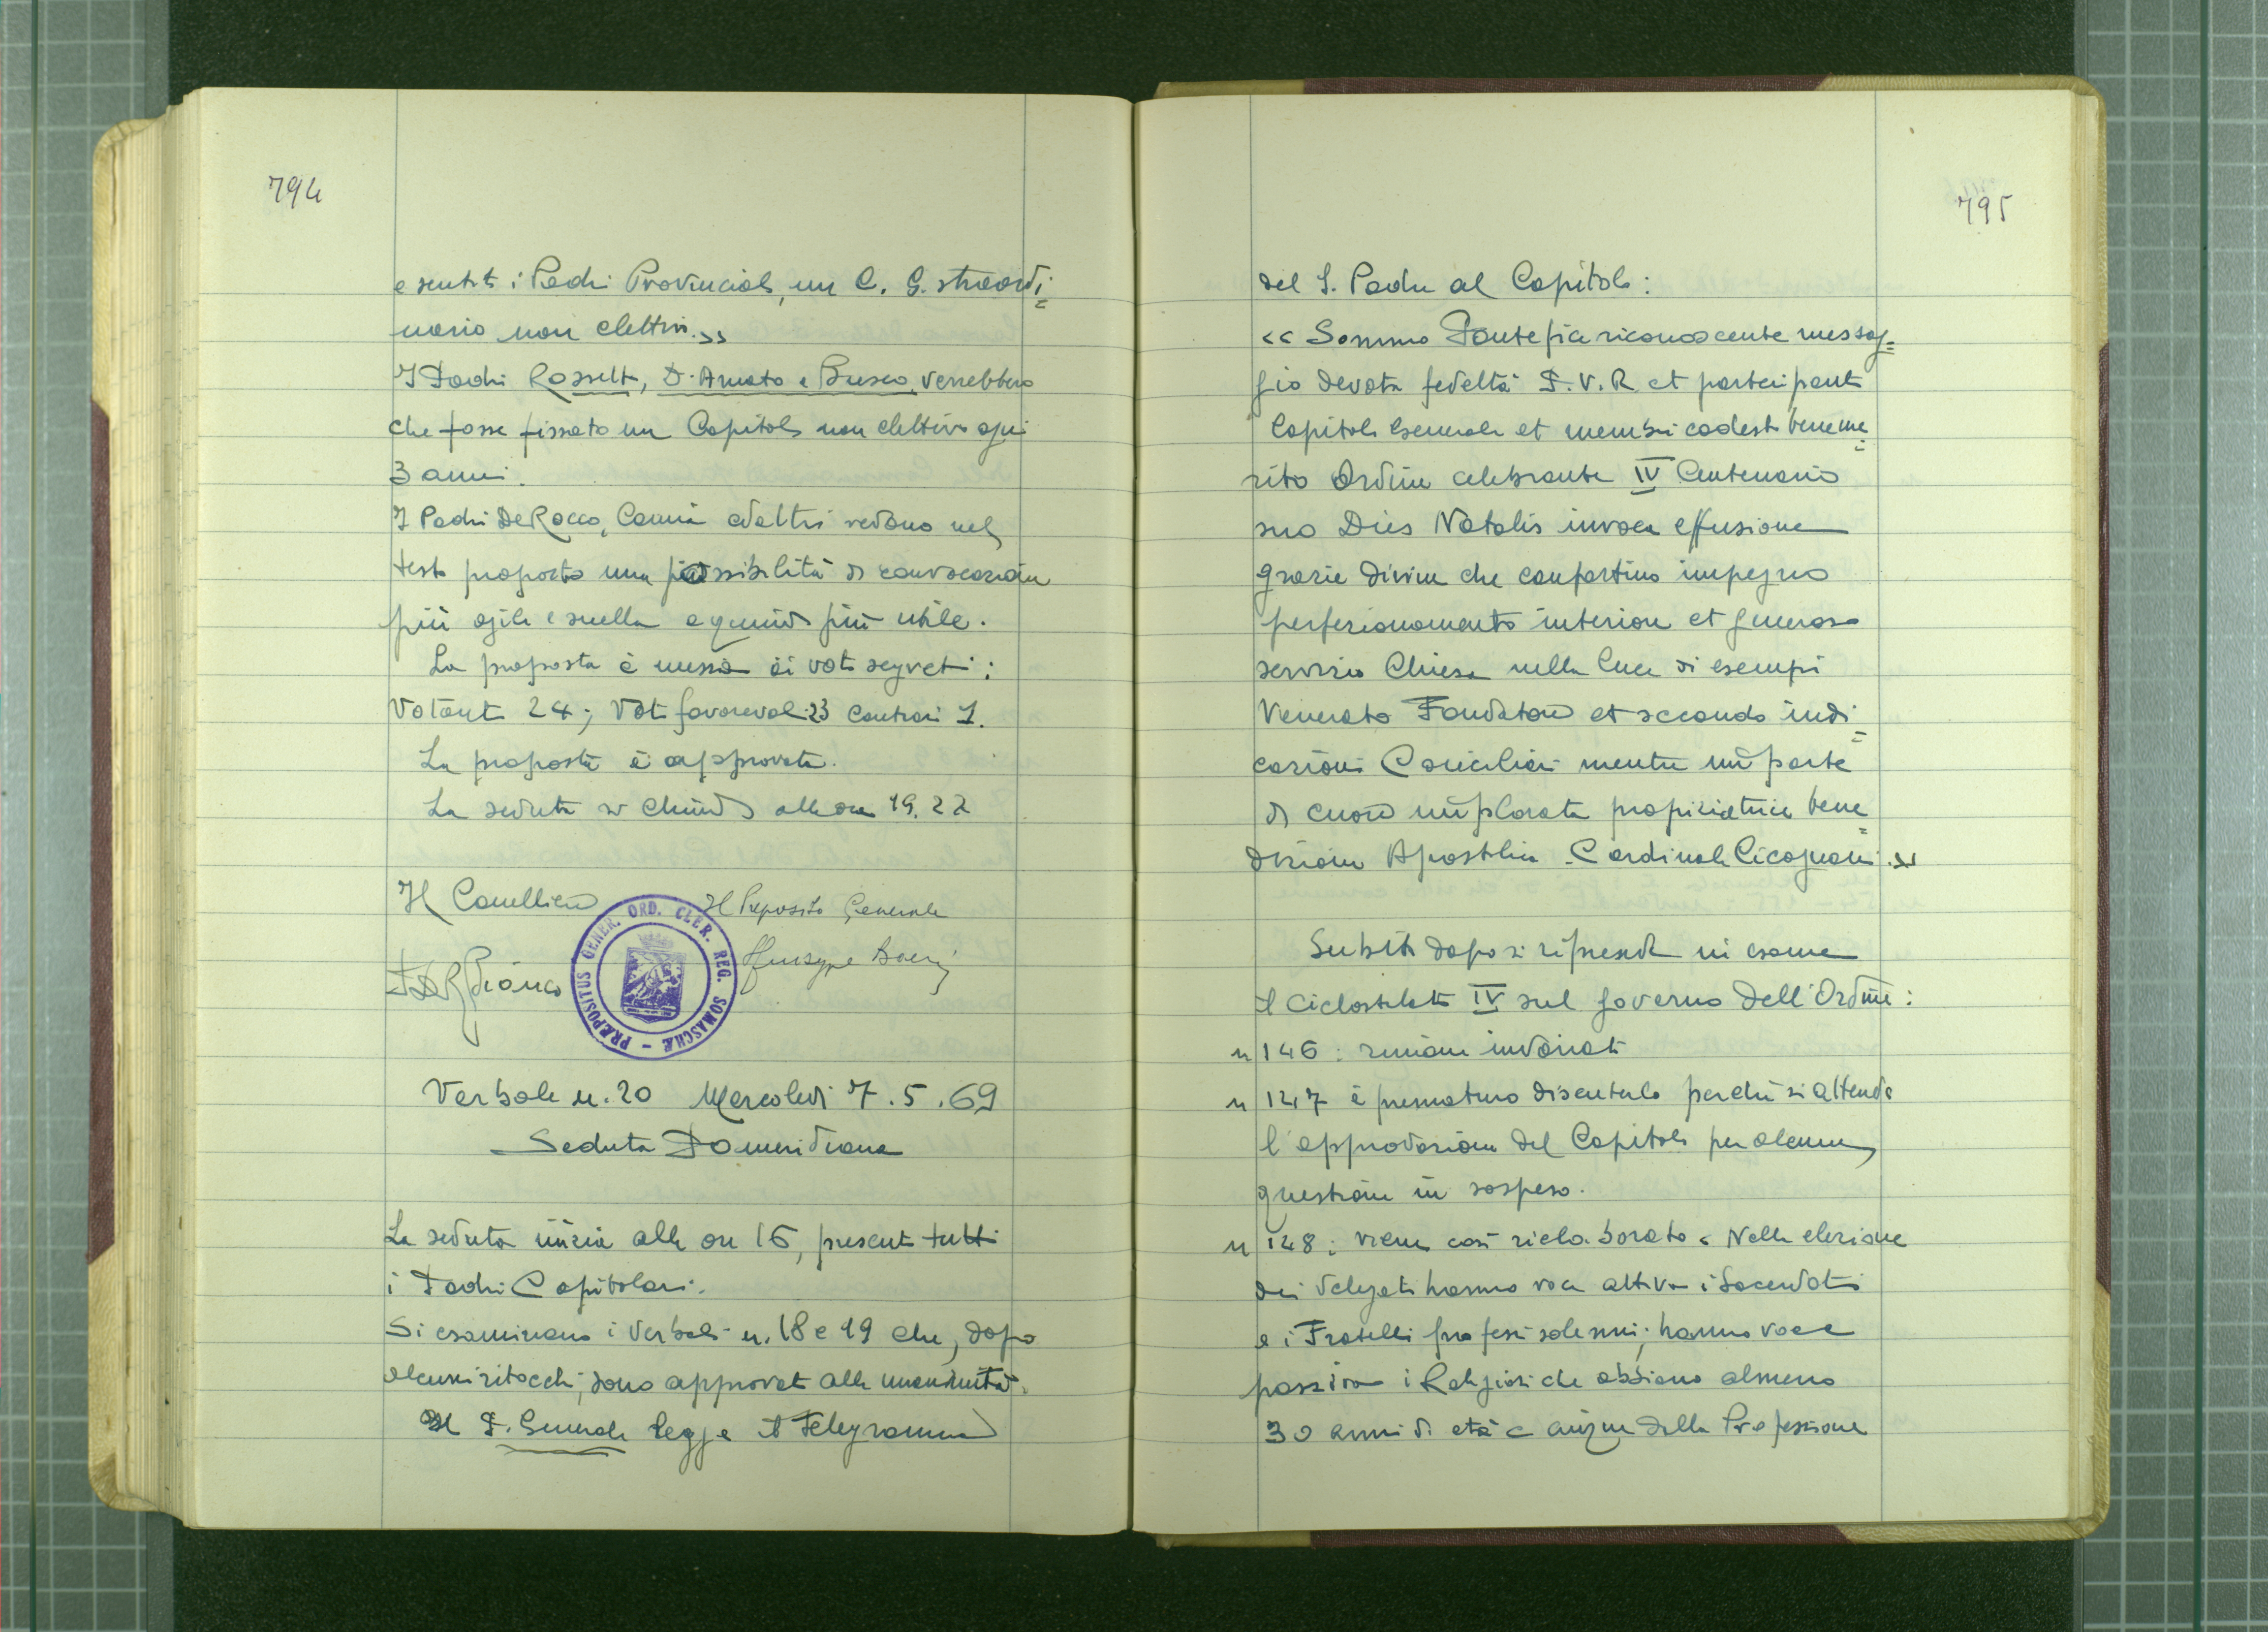 794
e sentiti i Padri Provinciali, un C. G. straordi=
nario non elettivo.»
I Padri Rosselti, D'Amato e Busco verrebbero
che fosse fissato un Capitolo non elettivo ogni
3 anni.
I Padri De Rocco, Camia ed altri vedono nel
testo proposto una possibilità di convocazione
più agile e snella e quindi più utile.
La proposta è messa ai voti segreti:
Votanti 24; Voti favorevoli 23 Contrari 1.
La proposta è approvata.
La seduta si chiude alle ore 19.22
Il Cancelliere Il Preposito Generale
Giuseppe Boeri
PRÆPOSITUS GENER. ORD. CLER. REG. SOMASCHÆ -
Verbale n. 20 Mercoledi 7.5.69
Seduta Pomeridiana
La seduta inizia alle ore 16, presenti tutti
i Padri Capitolari.
Si esaminano i Verbali n. 18 e 19 che, dopo
alcuni ritocchi, sono approvati alla unanimità.
Il P. Generale legge il telegramma
795
del S. Padre al Capitolo:
«Sommo Pontefice riconoscente messag=
gio devota fedeltà P.V.R et partecipanti
Capitolo Generale et membri codesto beneme=
rito Ordine celebrante IV Centenario
suo Dies Natalis invoca effusione
grazie divine che confortino impegno
perfezionamento interiore et generoso
servizio Chiesa nella luce di esempi
Venerato Fondatore et secondo indi=
cazioni Conciliari mentre imparte
di cuore implorata propiziatrice bene=
dizione Apostolica Cardinale Cicognani.»
Subito dopo si riprende in esame
il Ciclostilato IV sul governo dell'Ordine:
n 146: rimane invariato
n 147 è prematuro discuterlo perché si attende
l'approvazione del Capitolo per alcune
questioni in sospeso.
n 148: viene così rielaborato «Nella elezione
dei delegati hanno voce attiva i Sacerdoti
e i Fratelli professi solenni; hanno voce
passiva i Religiosi che abbiano almeno
30 anni di età e cinque dalla Professione